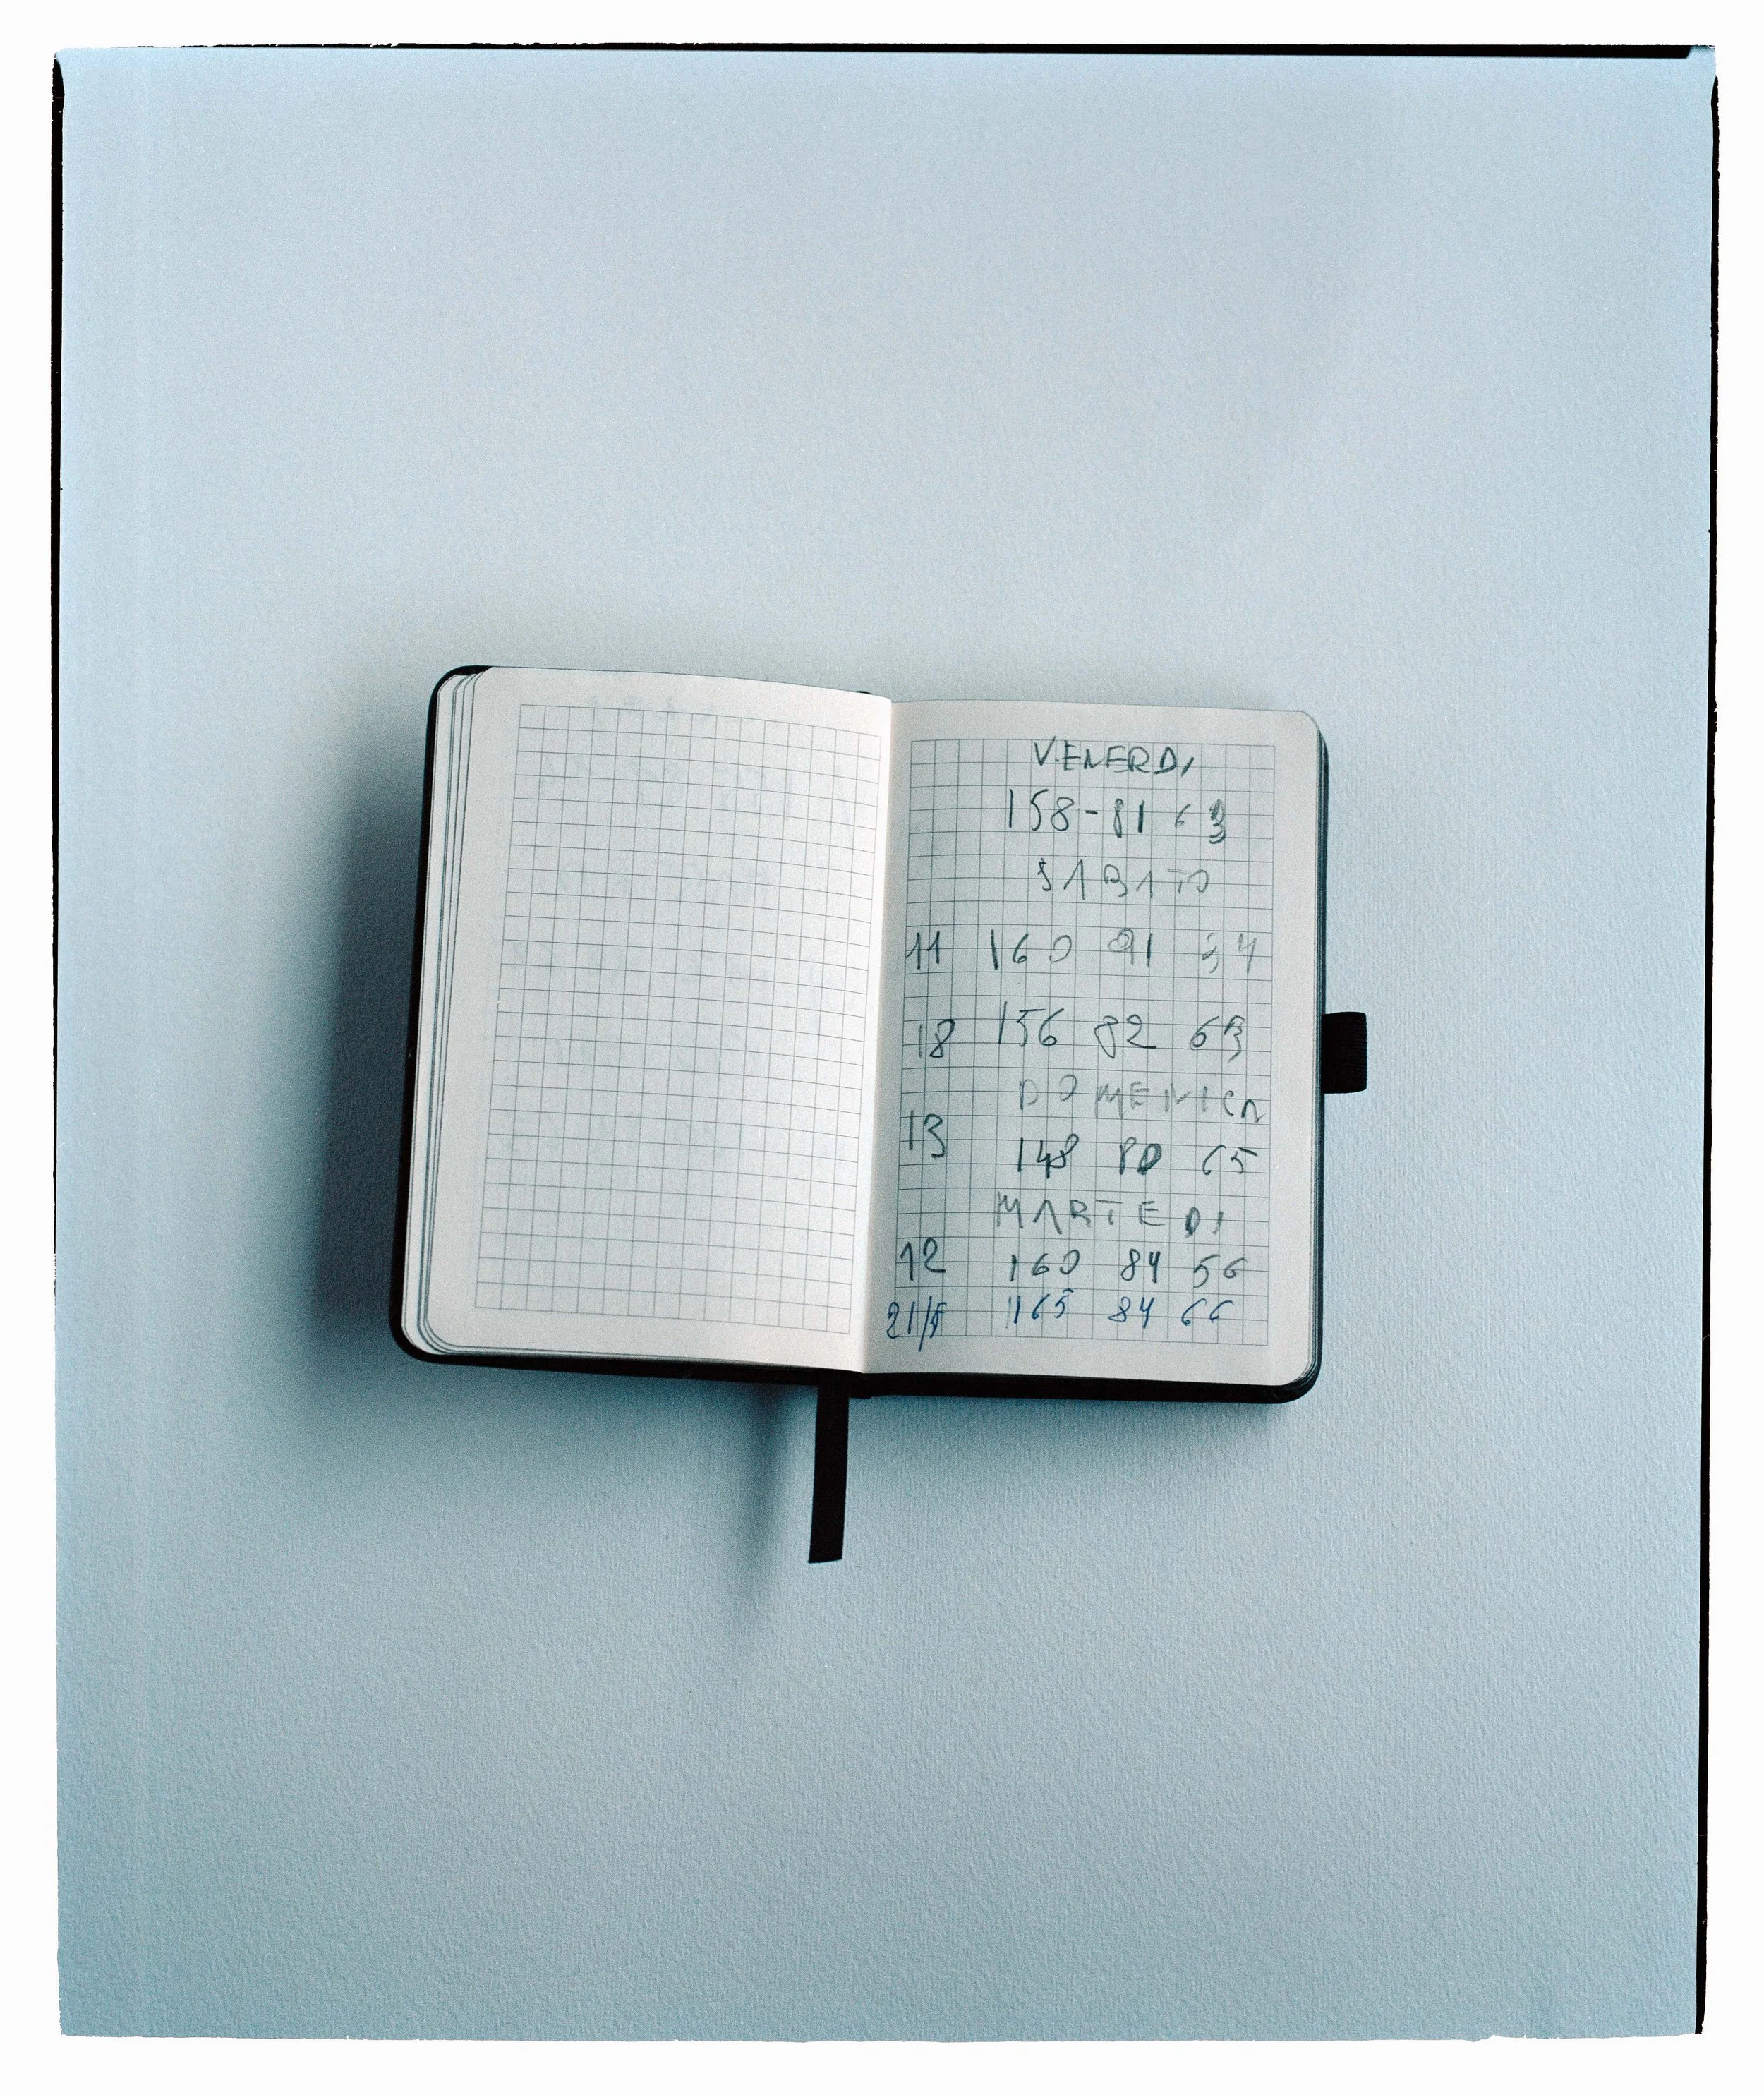 VENERDI
158-81 63
SABATO
11 160 91 54
18 156 82 63
DOMENICA
13
148 80 65
MARTEDI
12 160 84 56
165 84 66